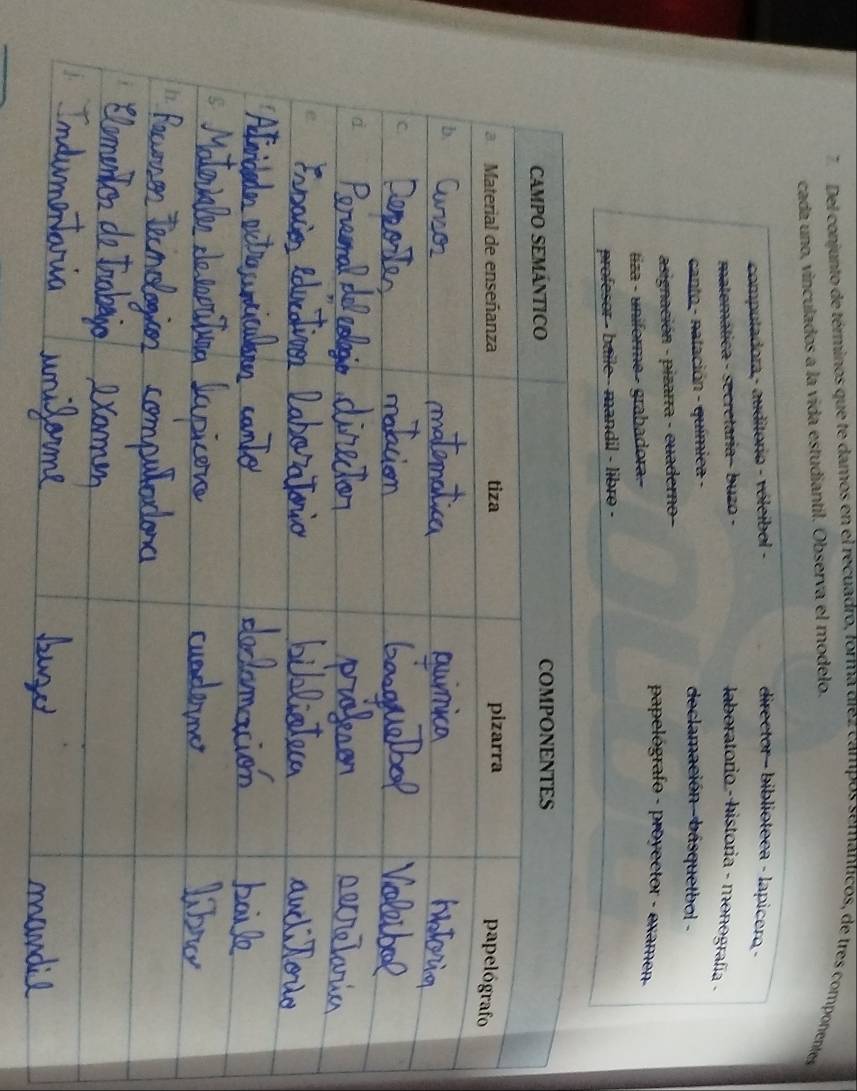 7. Del conjunto de términos que te damos en el recuadro, forma diez campos semánticos, de tres componentes
cada uno, vinculados a la vida estudiantil. Observa el modelo.
computadora - auditorio - vóleibol - director - biblioteca - lapicera -
matemática - secretaria - buzo - laboratorio - historia - monografía -
canto - natación - química - declamación - básquetbol -
asignación - pizarra - cuaderno - papelógrafo - proyector - examen
tiza - uniforme - grabadora -
profesor - baile - mandil - libro -
CAMPO SEMÁNTICO COMPONENTES
a. Material de enseñanza tiza pizarra papelógrafo
b. Cursos matemática química historia
c. Deportes natacion basquetbol Voleibol
d. Personal del colegio director profesor secretaria
e. Espacios educativos laboratorio biblioteca auditorio
f. Actividades extracurriculares canto declamación baile
g. Materiales de escritura lapicera cuaderno libro
h. Recursos Tecnologicos computadora
i. Elementos de trabajo examen
j. Indumentaria uniforme buzo mandil